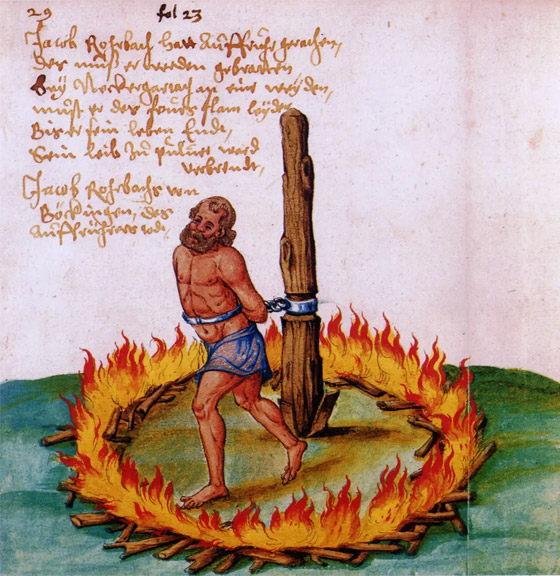 29 fol 23
Jacob Rohrbach hatt Auffruhr
Des muß er werden gebratten
Bey Neckergartach an eine weyden,
must er des feurs flam leyden
Bis er sein leben Endt,
Sein leib zu puluer ward
verbrendt,
Jacob Rohrbachs von
Böckingen, des
Auffrührers todt,